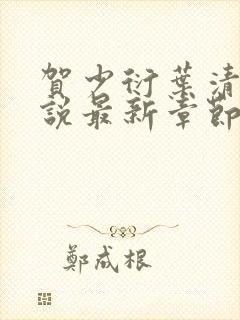 賀少衍葉清
說最新章節
鄭成根